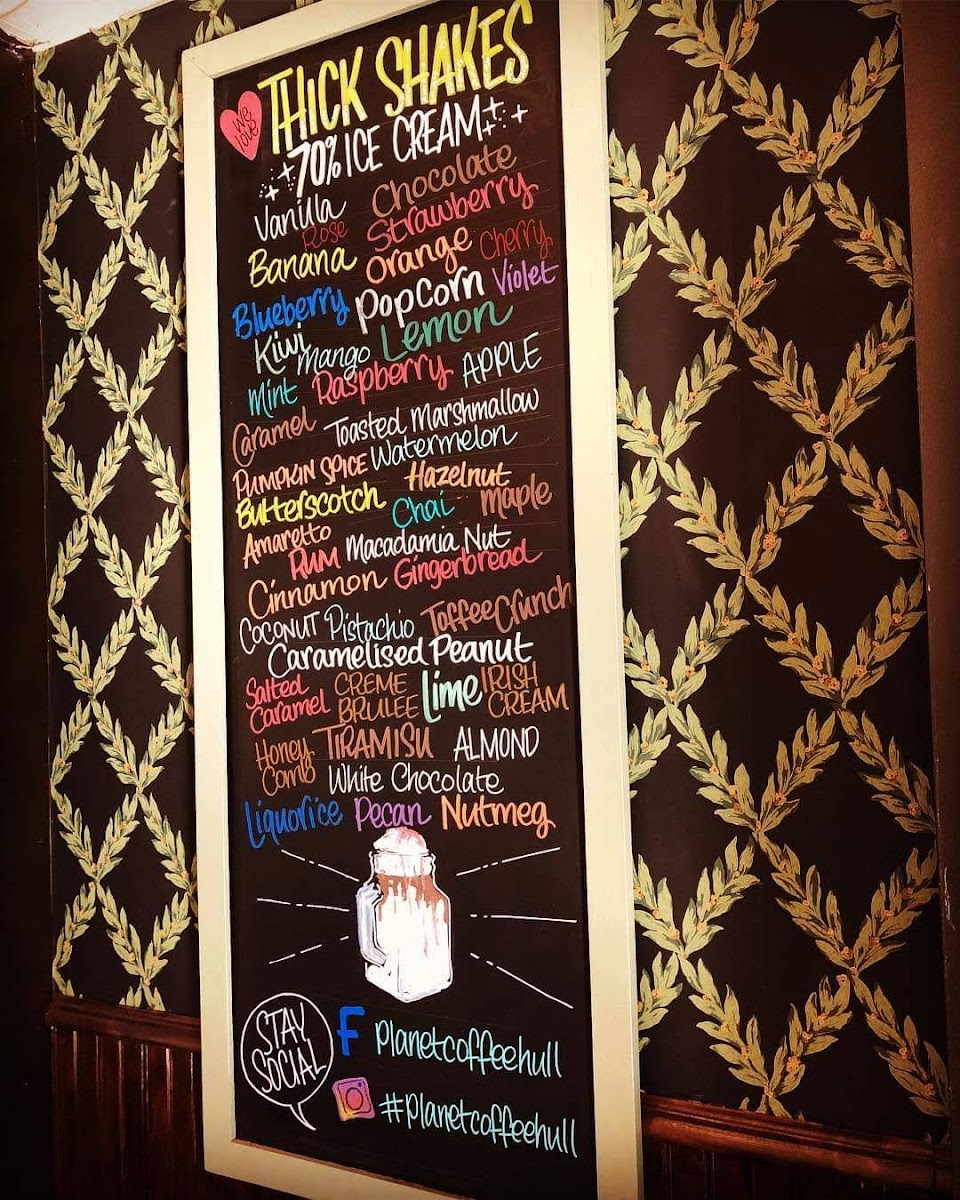 we love
THICK SHAKES
70% ICE CREAM
Vanilla Chocolate
Rose Strawberry
Banana Orange Cherry
Blueberry Popcorn Violet
Kiwi Mango Lemon
Mint Raspberry APPLE
Caramel Toasted Marshmallow
PUMPKIN SPICE Watermelon
Butterscotch Hazelnut
Chai Maple
Amaretto
RUM Macadamia Nut
Cinnamon Gingerbread
COCONUT Pistachio Toffee Crunch
Caramelised Peanut
Salted Caramel CREME BRULEE Lime IRISH CREAM
Honey Comb TIRAMISU ALMOND
White Chocolate
Liquorice Pecan Nutmeg
STAY SOCIAL
F planetcoffeehull
#planetcoffeehull